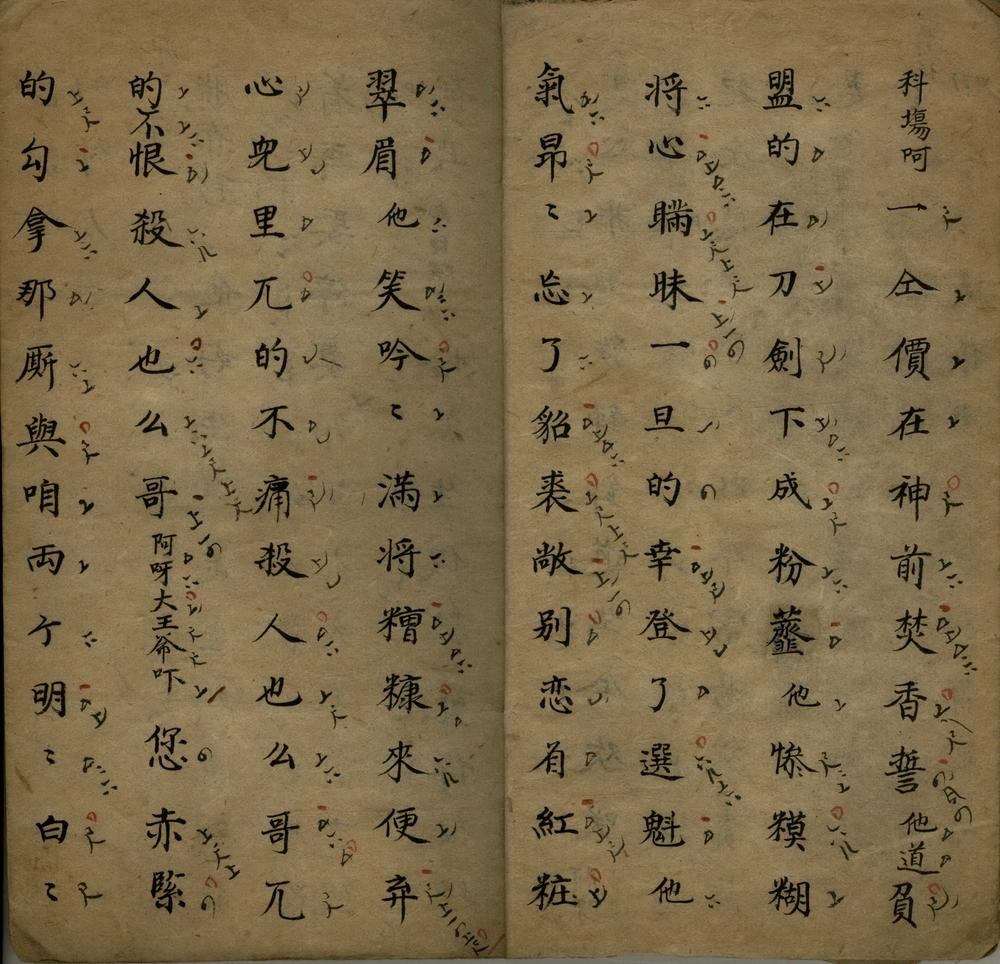 科塲阿一仝價在神前焚香誓他道負
盟的在刀劍下成粉虀他惨糢糊
将心瞞昧一旦的幸登了選魁他
氣昻〻忘了貂裘敞别恋有紅粧
翠眉他笑吟〻满将糟糠來便弃
心兜里兀的不痛殺人也么哥兀
的不恨殺人也么哥阿呀大王爷吓您赤緊
的勾拿那厮與咱両个明〻白〻